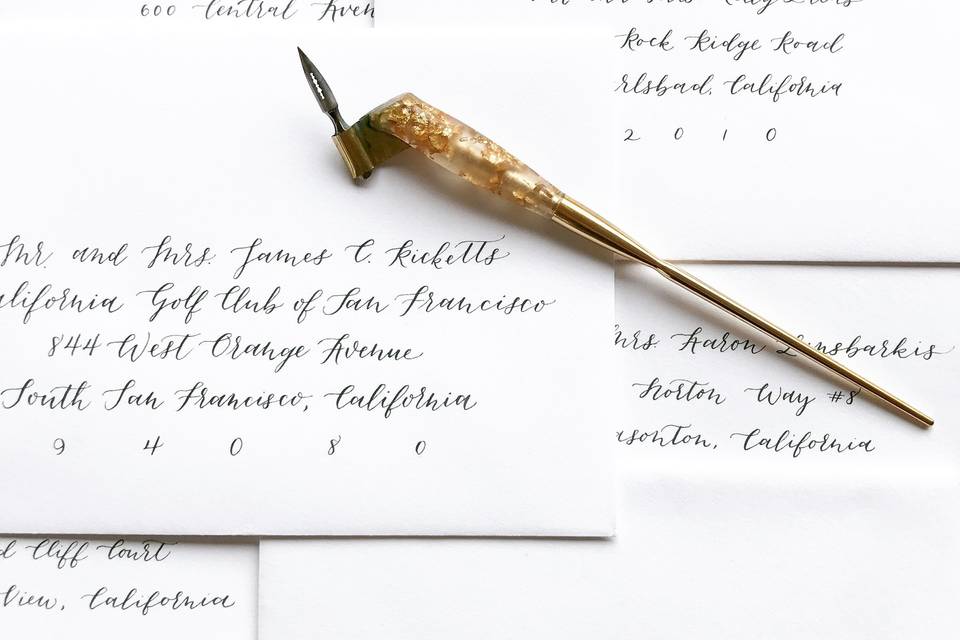 600 Central Aven
Rock Ridge Road
rlsbad, California
2 0 1 0
Mr. and Mrs. James C. Ricketts
alifornia Golf Club of San Francisco
844 West Orange Avenue
South San Francisco, California
9 4 0 8 0
Mrs. Aaron
Norton Way #8
asonton, California
d Cliff Court
View, California